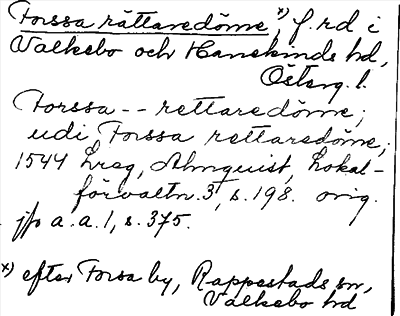 Forssa rättaredöme,x) f.rd i
Valkebo och Hanekinds hd,
Österg. l.
Forssa -- rettaredöme;
udi Forssa rettaredöme,
1544 Lreg, Almquist, Lokal-
förvaltn. 3, s. 198. orig.
jfr a.a. 1, s. 375.
x) efter Forsa by, Rappestads sn,
Valkebo hd